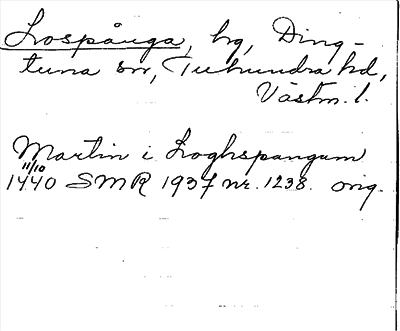 Lospånga, hg, Ding-
tuna sn, Tuhundra hd,
Västm. l.
Martin i Loghspangum
11/10
1440 SMR 1937 nr. 1238. orig.